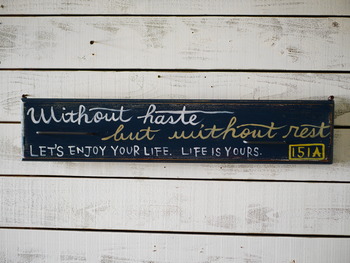 Without haste
but without rest
LET'S ENJOY YOUR LIFE. LIFE IS YOURS.
151A